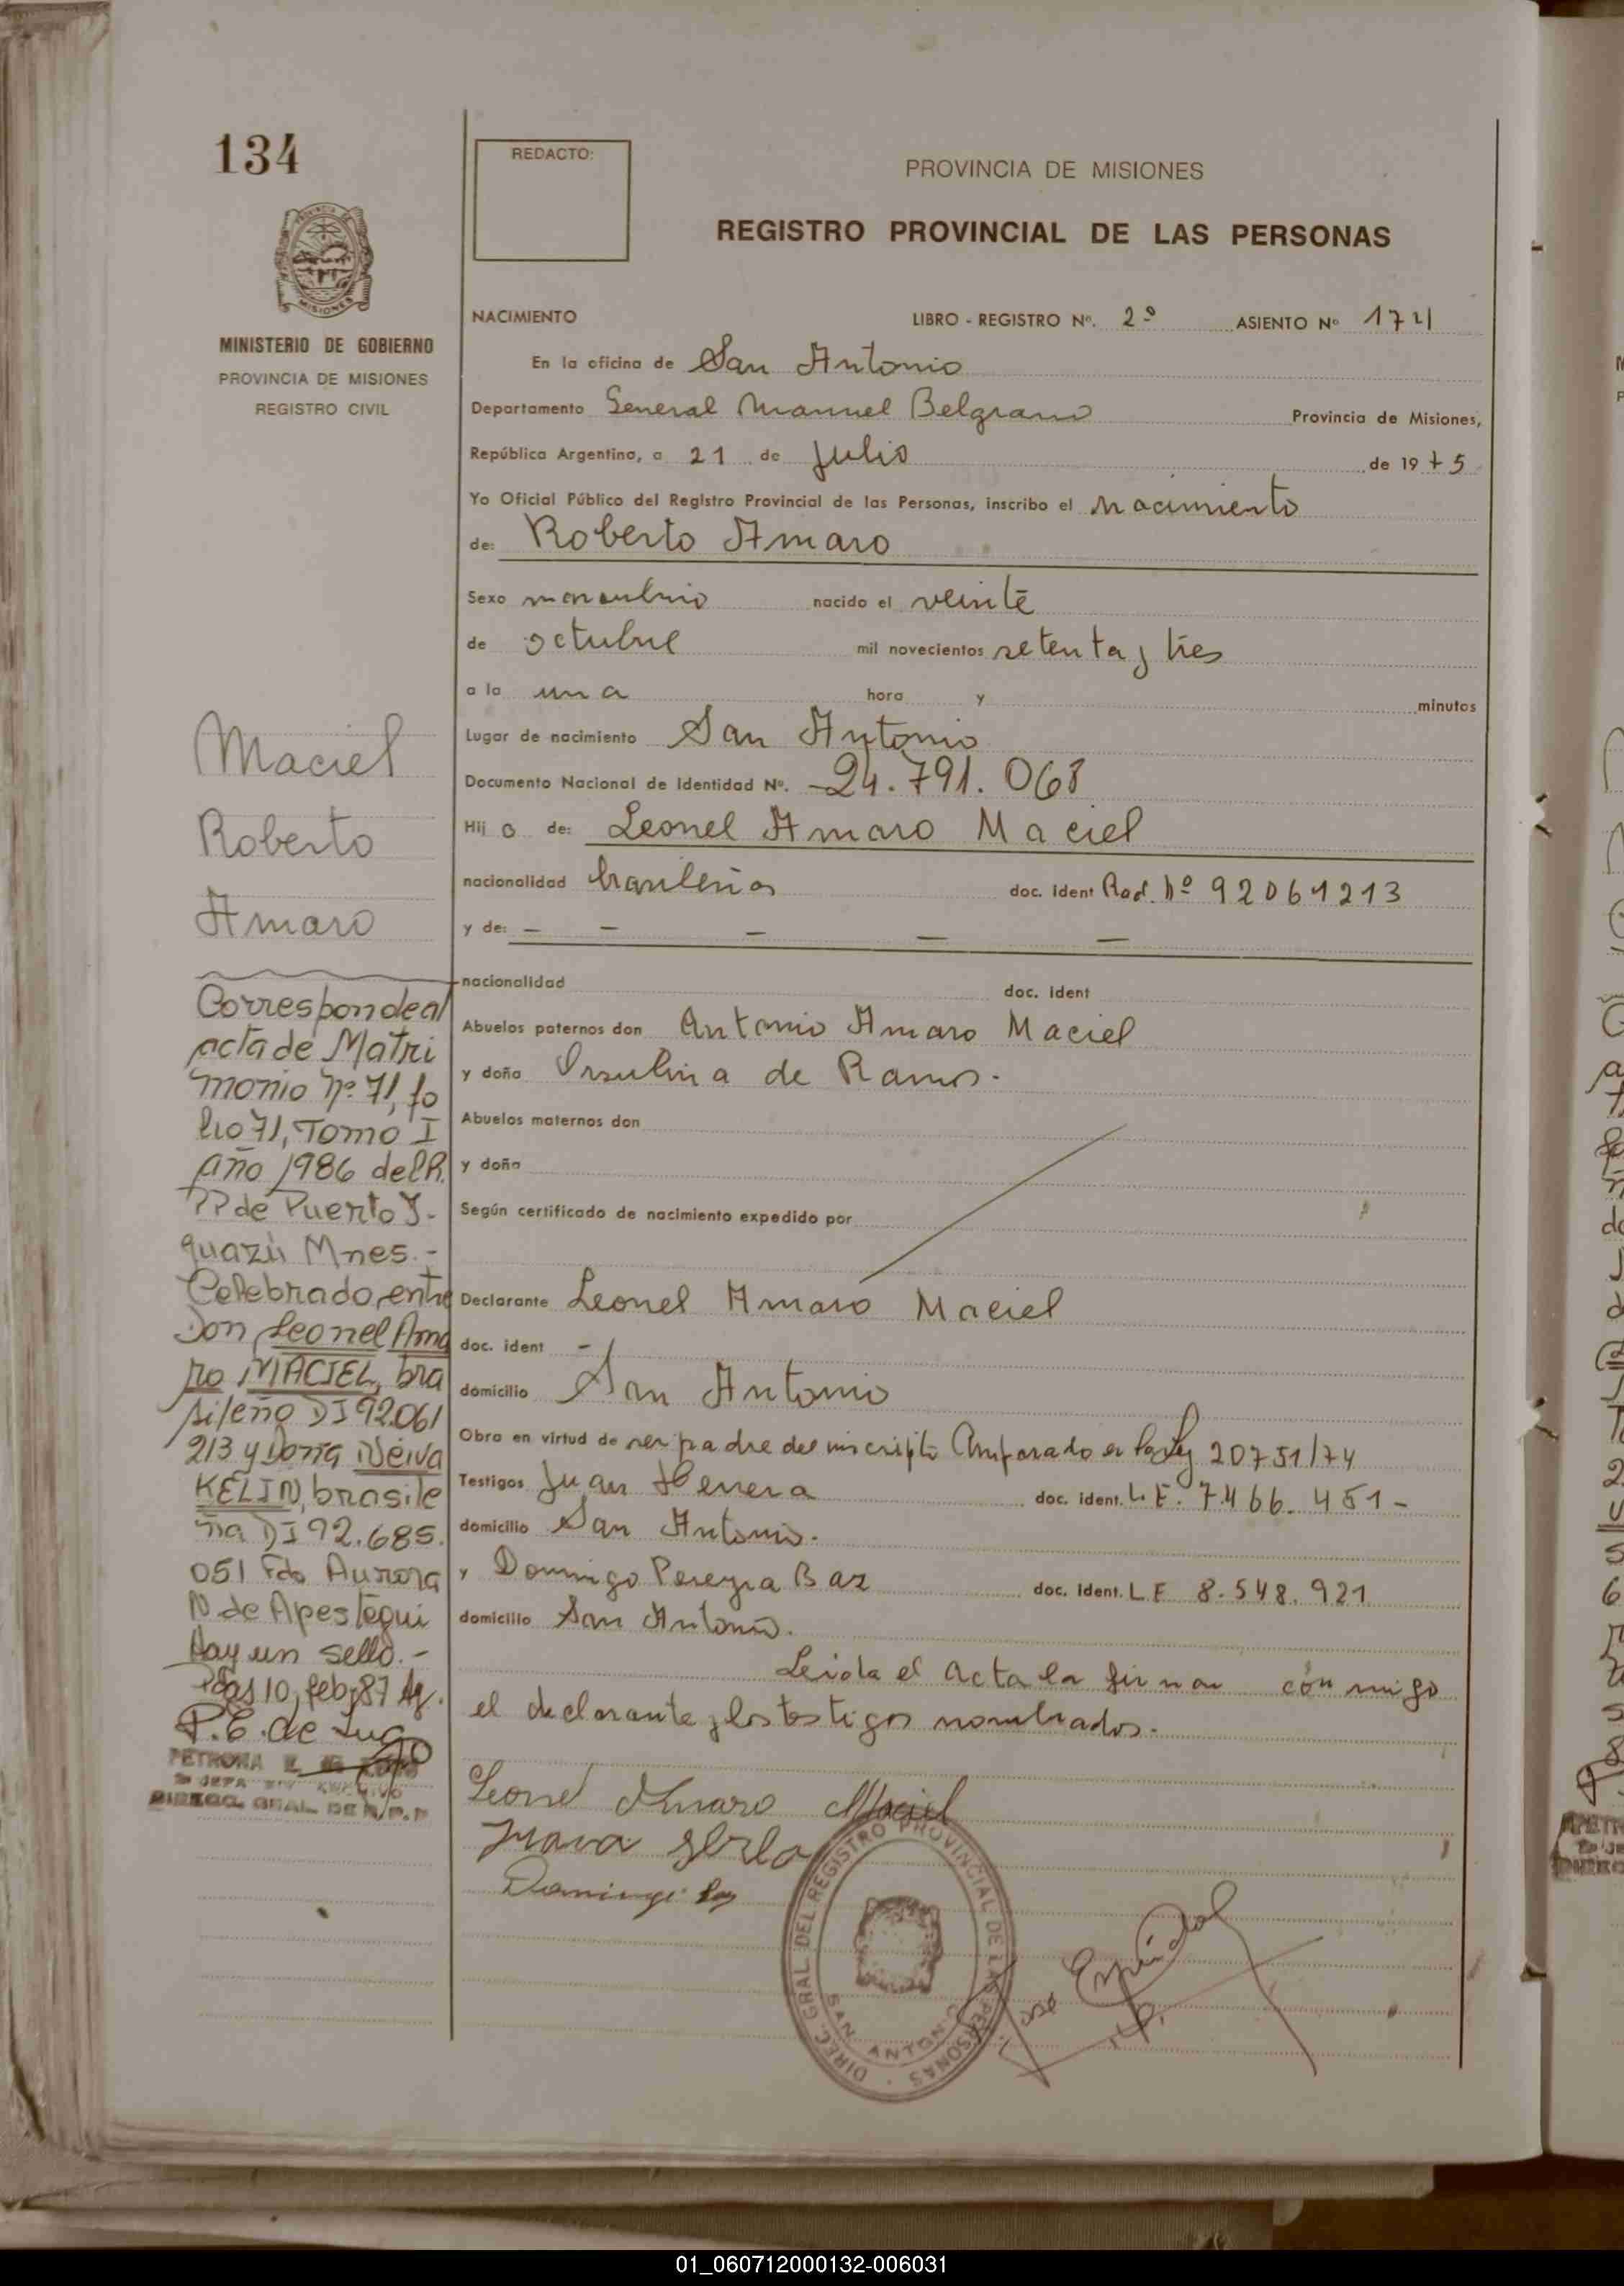 134
REDACTO:
PROVINCIA DE MISIONES
REGISTRO PROVINCIAL DE LAS PERSONAS
MISIONES
MINISTERIO DE GOBIERNO
PROVINCIA DE MISIONES
REGISTRO CIVIL
NACIMIENTO LIBRO - REGISTRO Nº. 2º ASIENTO Nº
En la oficina de San Antonio
Departamento General Manuel Belgrano Provincia de Misiones,
República Argentina, a 21 de Julio de 1975
Yo Oficial Público del Registro Provincial de las Personas, inscribo el nacimiento
de: Roberto Amaro
Sexo masculino nacido el veinte
de octubre mil novecientos setenta y tres
a la una hora y minutos
Lugar de nacimiento San Antonio
Documento Nacional de Identidad Nº. 24.791.068
Hijo de: Leonel Amaro Maciel
nacionalidad brasileña doc. ident Rad. Nº 92061213
y de: - - - - -
nacionalidad doc. ident
Abuelos paternos don Antonio Amaro Maciel
y doña Ursulina de Ramos.
Abuelos maternos don
y doña
Según certificado de nacimiento expedido por
Declarante Leonel Amaro Maciel
doc. ident -
domicilio San Antonio
Obra en virtud de ser padre del inscripto Amparado en la Ley 20751/74
Testigos Juan Herrera doc. ident. L.E. 7.466.451-
domicilio San Antonio.
y Domingo Pereyra Baz doc. ident. L E 8.548.921
domicilio San Antonio.
Leida el Acta la firman conmigo
el declarante y los testigos nombrados.
Leonel Amaro Maciel
Domingo
DIREC. GRAL DEL REGISTRO PROVINCIAL DE LAS PERSONAS
SAN ANTONIO
José
Maciel
Roberto
Amaro
Corresponde al
acta de Matri
monio nº 71, fo
lio 71, Tomo I
año 1986 del R.
PP de Puerto I-
guazú Mnes.-
Celebrado, entre
Don Leonel Ama
ro MACIEL, bra
sileño DI 92.061
213 y Doña Neiva
KELIN, brasile
ña DI 92.685.
051 Fdo Aurora
N. de Apestegui
Hay un sello.-
Pdas 10, feb, 87
P.E. de Lugo
PETRONA E. DE LUGO
JEFA DIV ARCHIVO
DIRECC. GRAL. DE R.P.P
01_060712000132-006031